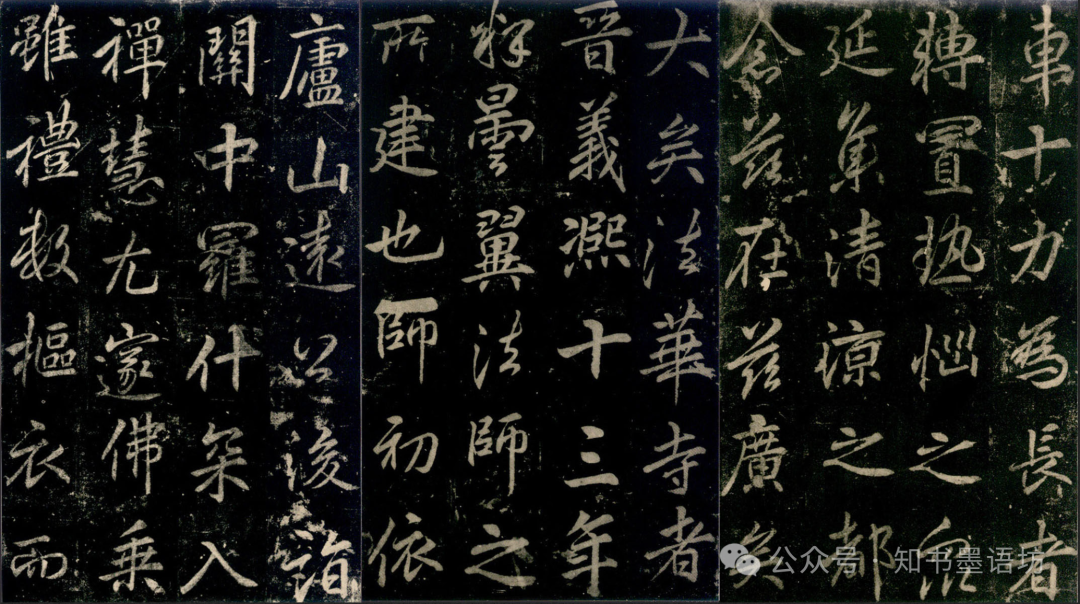 車十力為長者
轉置熱惱之眾
延集清涼之都
念茲在茲廣矣
大矣法華寺者
晉義熈十三年
釋曇翼法師之
所建也師初依
廬山遠公後詣
關中羅什罙入
禪慧尤邃佛乘
雖禮數摳衣而
公众号·知书墨语坊